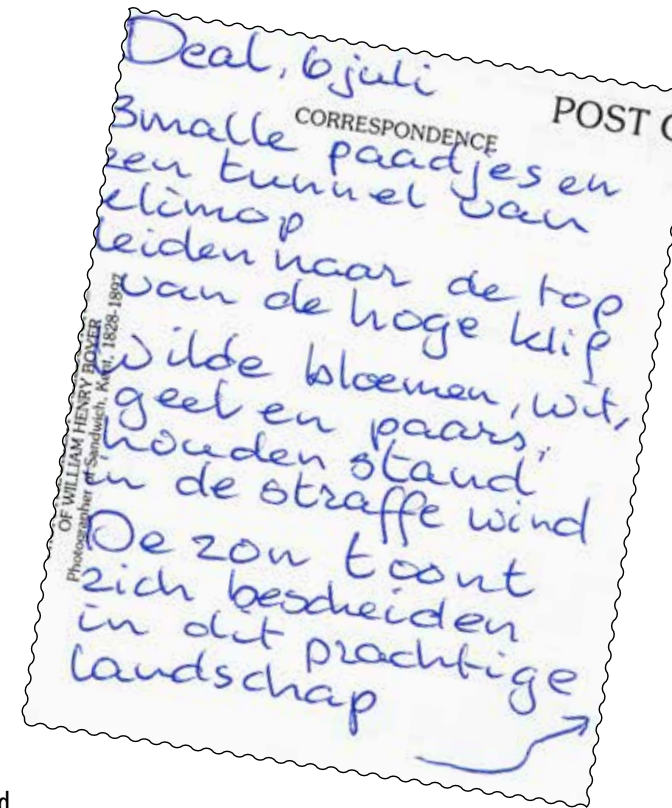 Deal, 6 juli
POST
CORRESPONDENCE
Smalle paadjes en
een tunnel van
klimop
leiden naar de top
van de hoge klif
wilde bloemen, wit,
geel en paars,
houden stand
in de straffe wind
De zon toont
zich bescheiden
in dit prachtige
landschap
OF WILLIAM HENRY BOYER
Photographer of Sandwich, Kent, 1828-1897
d